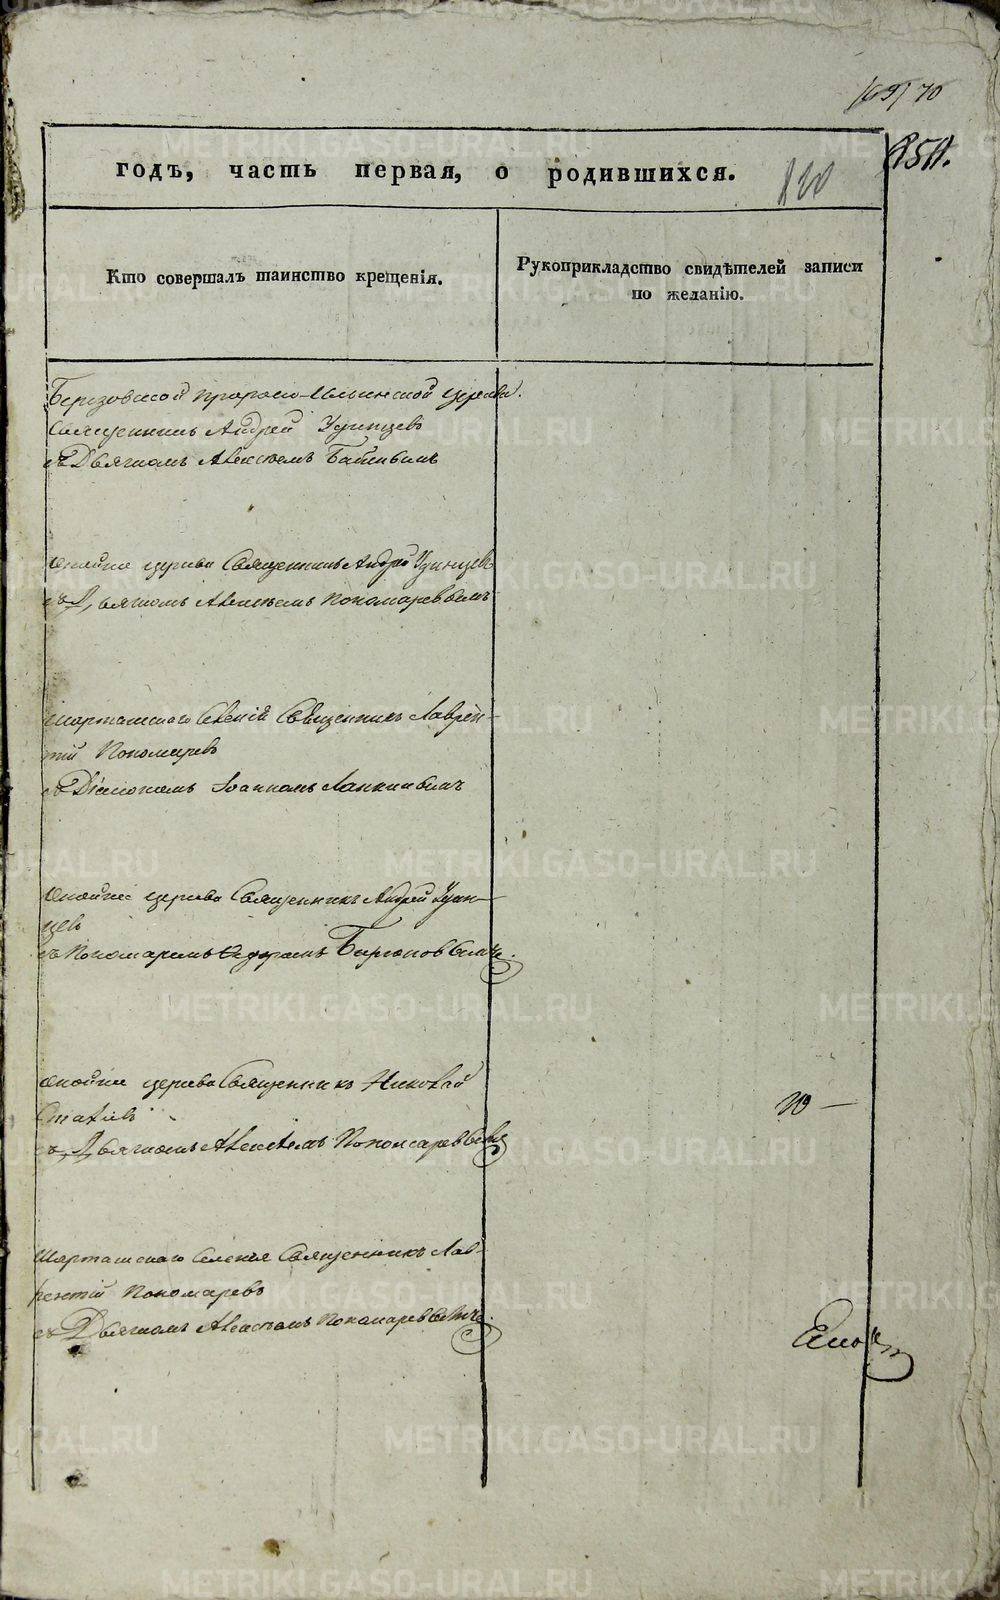 70
годъ, часть первая, о родившихся.
Кто совершалъ таинство крещенія.
Рукоприкладство свидѣтелей записи
по желанію.
Березовской Пророко-Ильинской церкви
Священникъ Андрей Удинцевъ
съ Дьячкомъ Алексѣемъ
церкви Священникъ Андрей Удинцевъ
съ Дьячкомъ Алексѣемъ Пономаревымъ
Шарташскаго Священникъ Лаврен-
тій Пономаревъ
съ Діакономъ Іоанномъ
церкви Священникъ Андрей Удин-
цевъ
съ Пономаремъ Бирюковымъ
церкви Священникъ Николай
съ Дьячкомъ Алексѣемъ Пономаревымъ
Шарташскаго Селенія Священникъ Лав-
рентій Пономаревъ
съ Дьячкомъ Алексѣемъ Пономаревымъ
METRIKI.GASO-URAL.RU